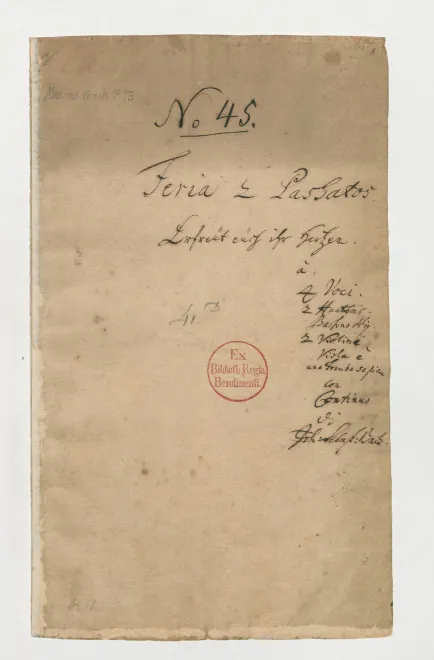 Mus. ms. Bach P 73
No 45.
Feria 2 Paschatos
Erfreüt eüch ihr Hertzen.
à.
4 Voci.
2 Hautb:
2 Violini
Viola e
una tromba se piace
con
Continuo
di
Joh: Sebast: Bach.
Ex
Biblioth. Regia
Berolinensi.